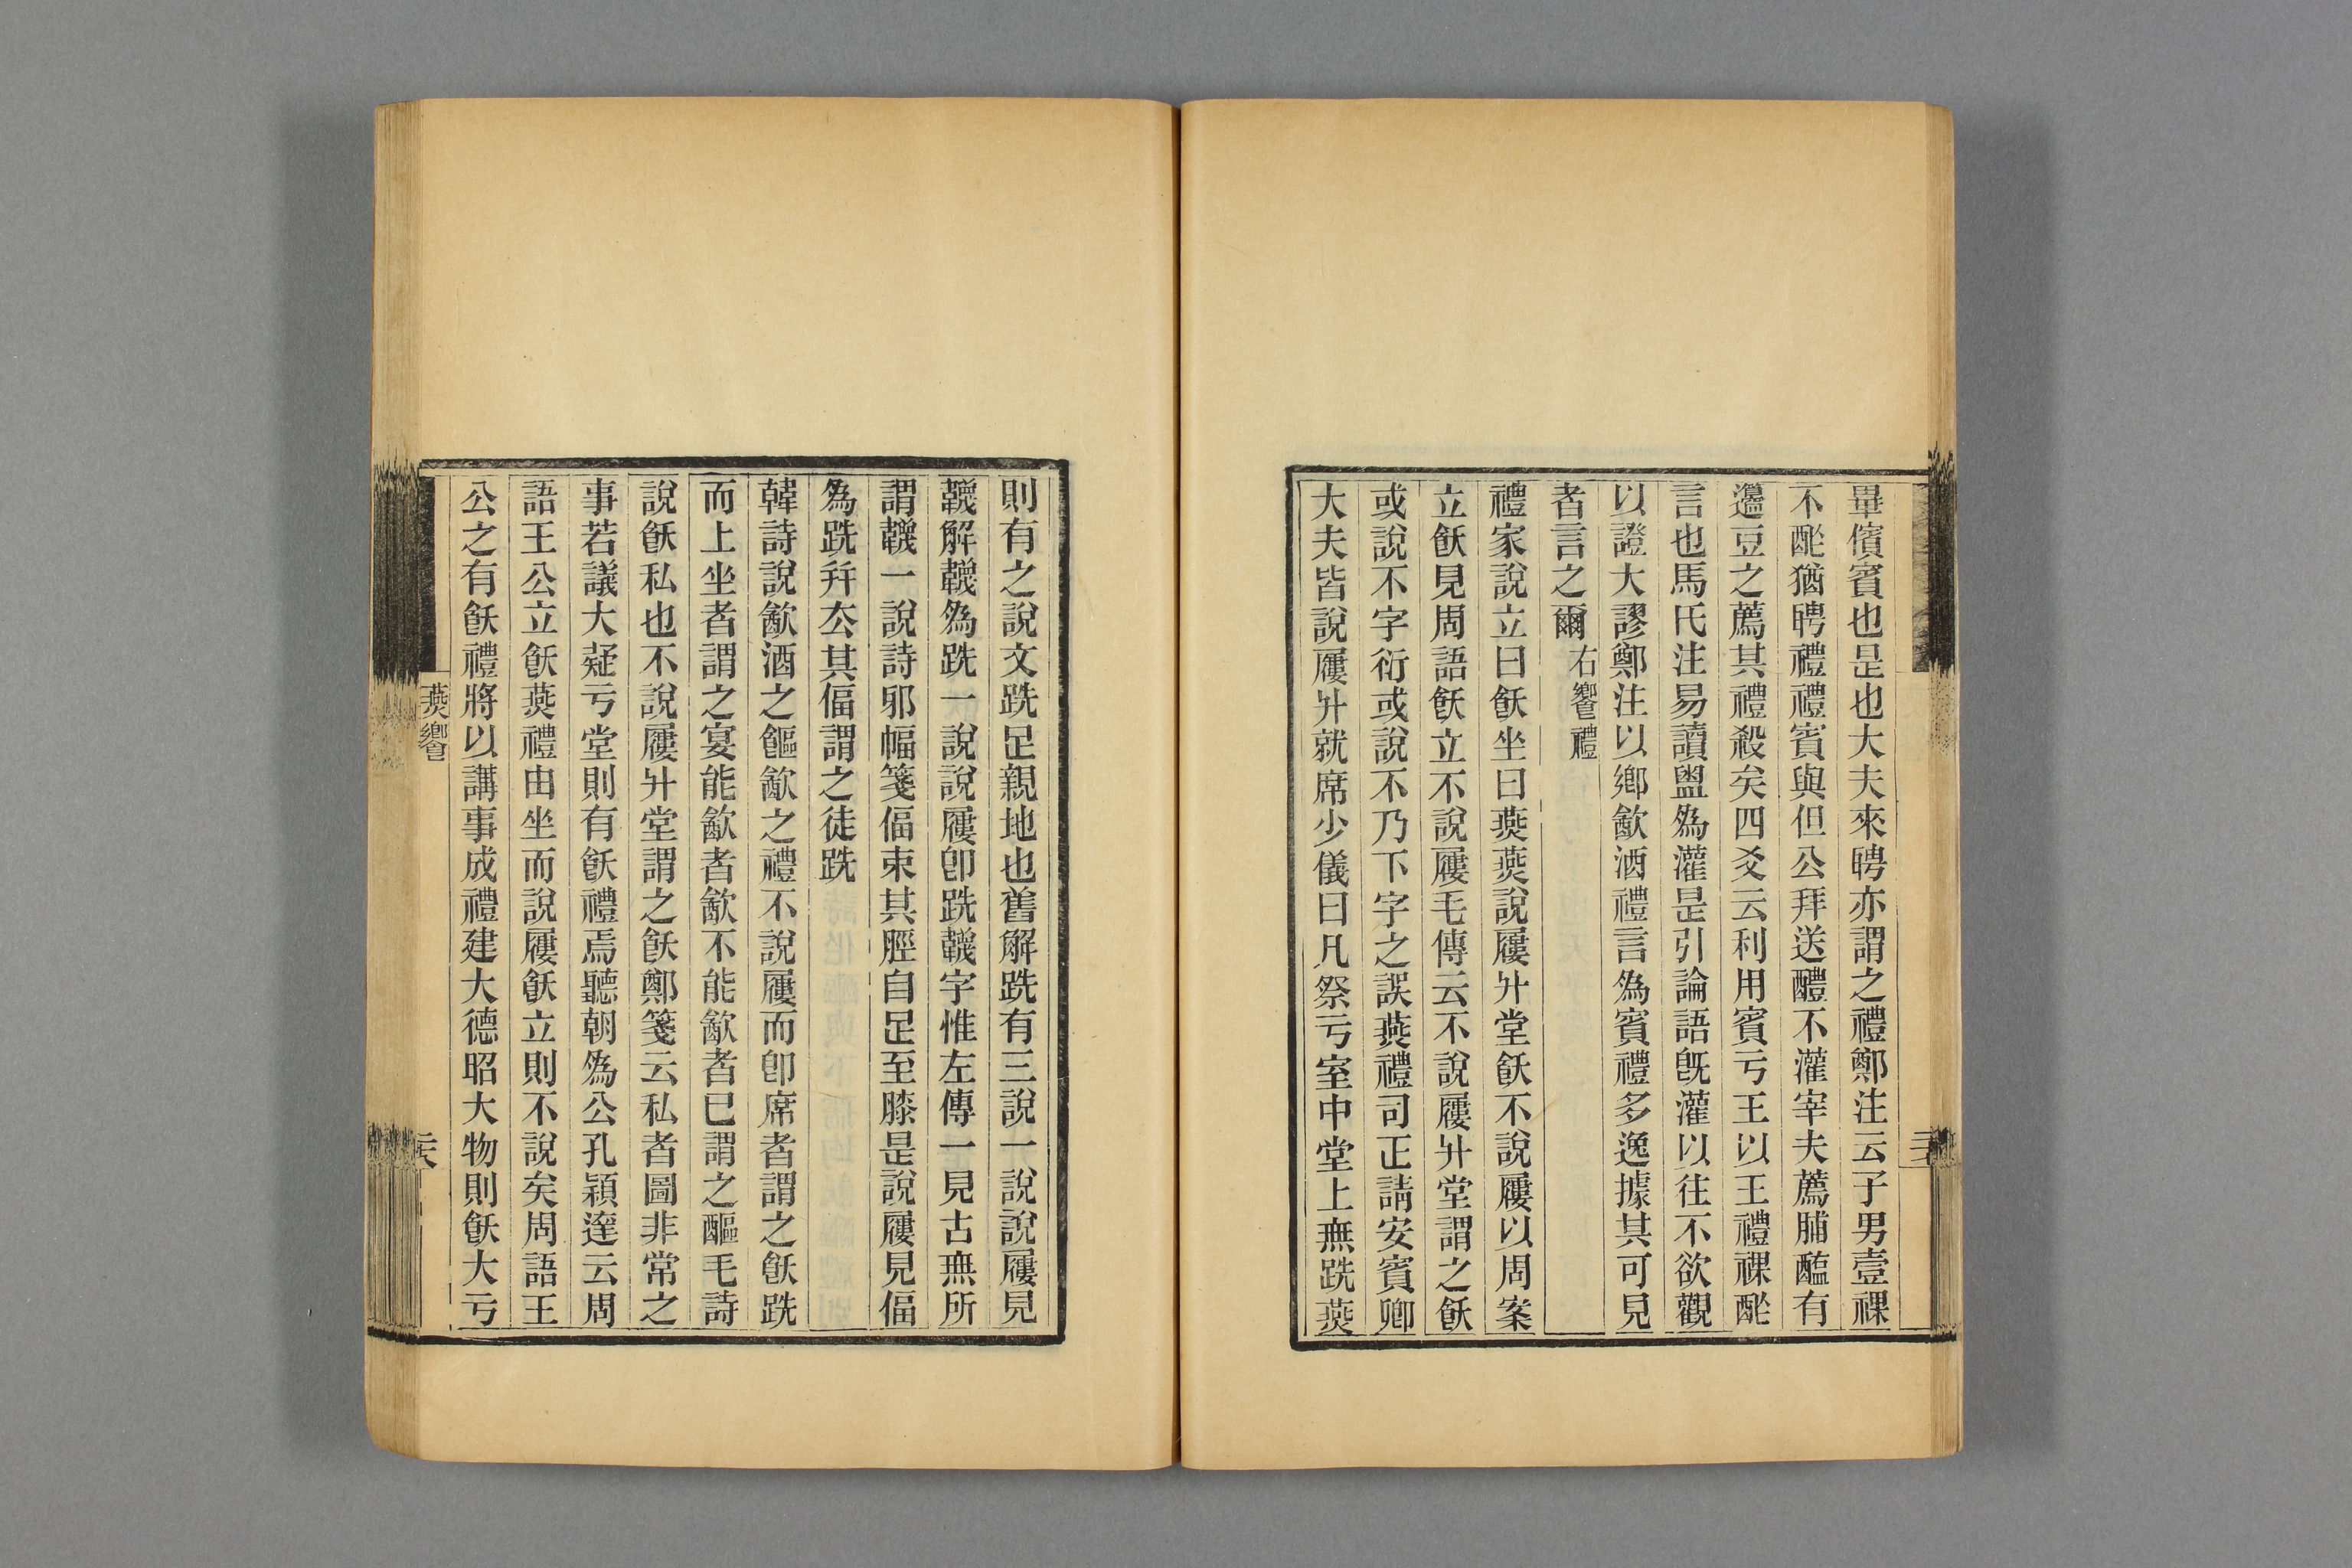 畢儐賓也是也大夫來聘亦謂之禮鄭注云子男壹祼
不酡猶聘禮禮賓與但公拜送醴不灌宰夫薦脯醢有
籩豆之薦其禮殺矣四爻云利用賓亏王以王禮祼酡
言也馬氏注易讀盥為灌是引論語旣灌以往不欲觀
以證大謬鄭注以鄉飮酒禮言為賓禮多逸據其可見
者言之爾 右饗禮
禮家說立曰飫坐曰燕燕說屨升堂飫不說屨以周案
立飫見周語飫立不說屨毛傳云不說屨升堂謂之飫
或說不字衍或說不乃下字之誤燕禮司正請安賓卿
大夫皆說屨升就席少儀曰凡祭亏室中堂上無跣燕
則有之說文跣足親地也舊解跣有三說一說說屨見
韤解韤為跣一說說屨卽跣韤字惟左傳一見古無所
謂韤一說詩邪幅箋偪束其脛自足至膝是說屨見偪
為跣幷厺其偪謂之徒跣
韓詩說飮酒之饇飮之禮不說屨而卽席者謂之飫跣
而上坐者謂之宴能飮者飮不能飮者已謂之醧毛詩
說飫私也不說屨升堂謂之飫鄭箋云私者圖非常之
事若議大疑亏堂則有飫禮焉聽朝為公孔穎達云周
語王公立飫燕禮由坐而說屨飫立則不說矣周語王
公之有飫禮將以講事成禮建大德昭大物則飫大亏
燕饗